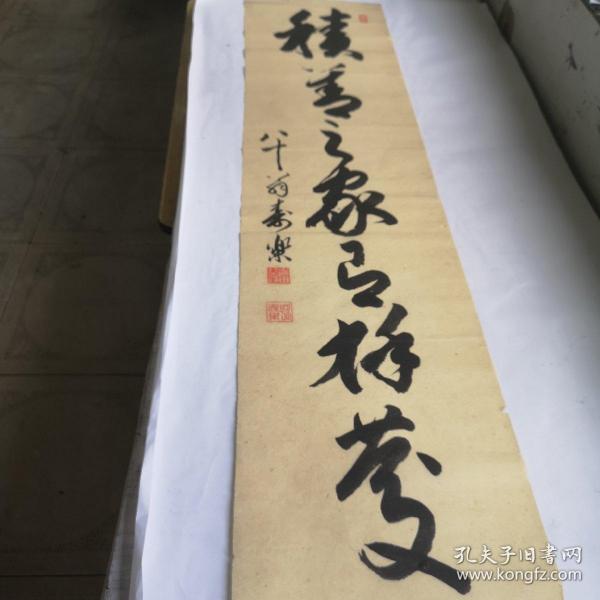 積善之家有餘慶
八十翁壽樂
孔夫子旧书网
www.kongfz.com